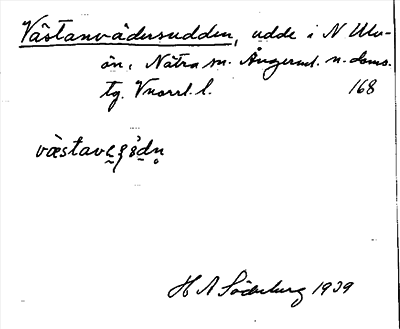 Västanvädersudden, udde i N Ulv-
ön, Nätra sn. Ångerml. n. doms.
tg. Vnorrl. l. 168
H A Söderberg 1939